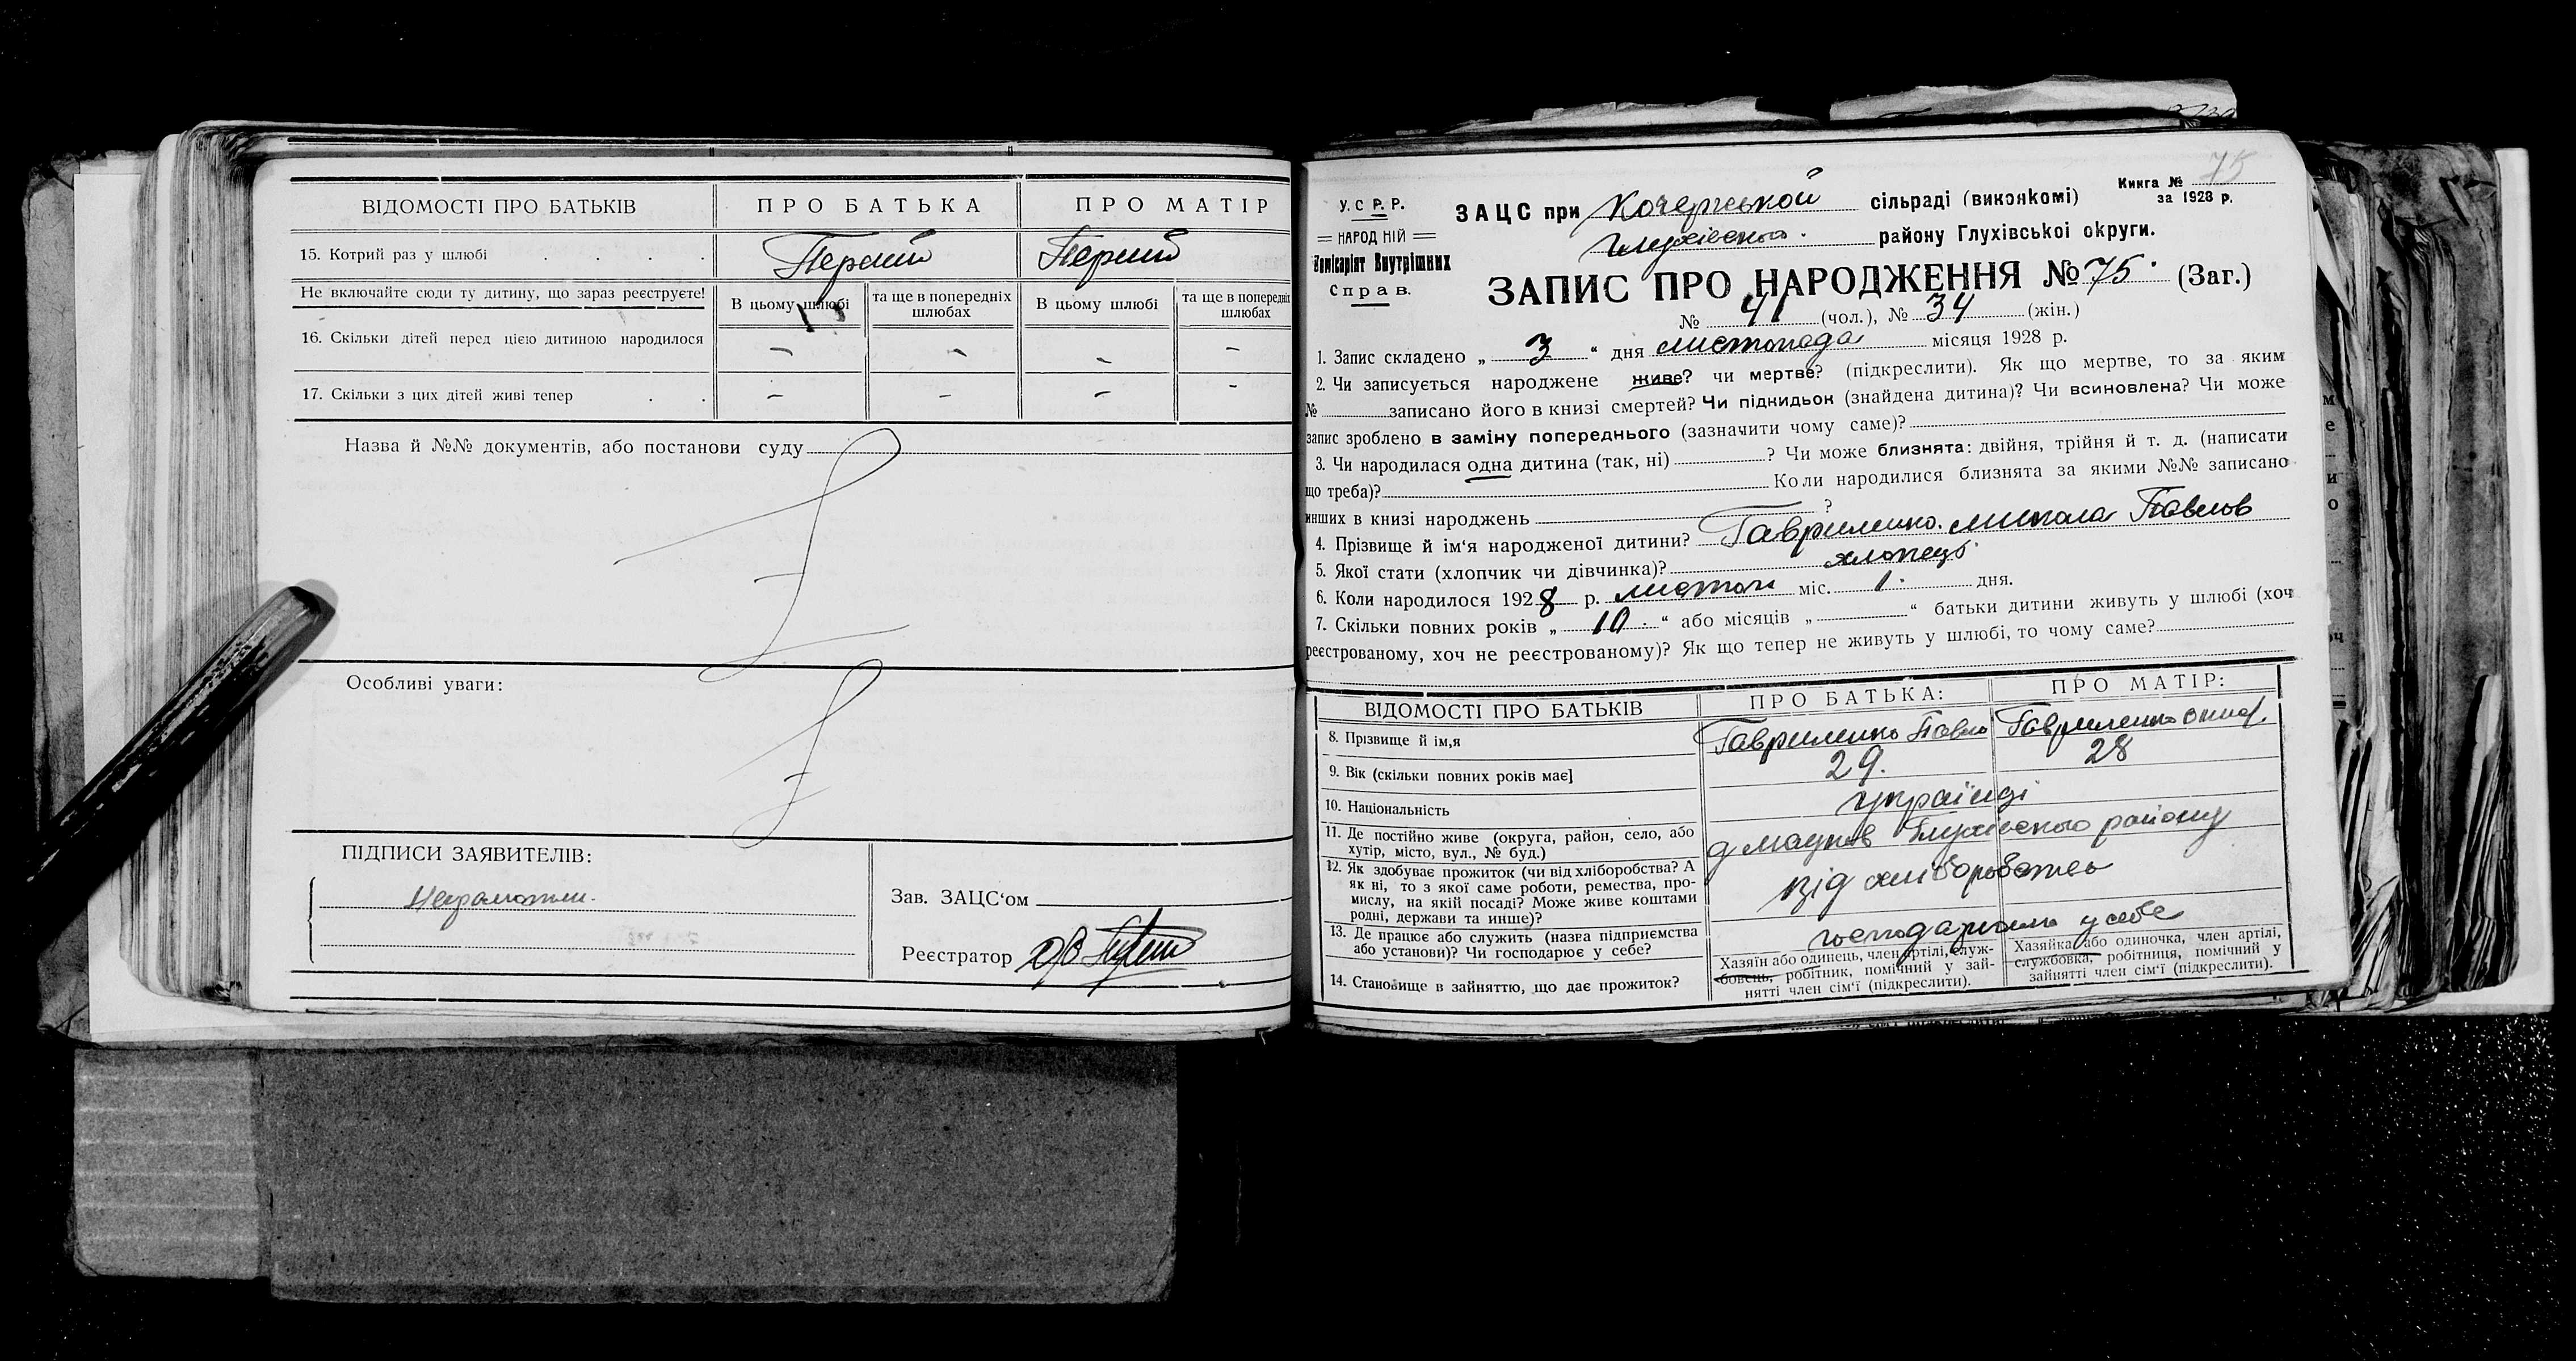 ВІДОМОСТІ ПРО БАТЬКІВ
ПРО БАТЬКА
ПРО МАТІР
15. Котрий раз у шлюбі . . . .
Перший
Перший
Не включайте сюди ту дитину, що зараз реєструєте!
В цьому шлюбі
та ще в попередніх шлюбах
В цьому шлюбі
та ще в попередніх шлюбах
16. Скільки дітей перед цією дитиною народилося
— — — —
17. Скільки з цих дітей живі тепер . .
— — — —
Назва й №№ документів, або постанови суду
Особливі уваги:
ПІДПИСИ ЗАЯВИТЕЛІВ:
Неграмотни.
Зав. ЗАЦС‘ом
Реєстратор
У. С Р. Р.
НАРОДНІЙ
Комісаріят Внутрішних
Справ.
Книга № 75
за 1928 р.
ЗАЦС при сільраді (виконкомі)
Глухівсько. району Глухівської округи.
ЗАПИС ПРО НАРОДЖЕННЯ № 75. (Заг.)
№ 41 (чол.), № 34 (жін.)
1. Запис складено „ 3 “ дня листопада місяця 1928 р.
2. Чи записується народжене живе? чи мертве? (підкреслити). Як що мертве, то за яким
№ записано його в книзі смертей? Чи підкидьок (знайдена дитина)? Чи всиновлена? Чи може
запис зроблено в заміну попереднього (зазначити чому саме)?
3. Чи народилася одна дитина (так, ні) ? Чи може близнята: двійня, трійня й т. д. (написати
що треба)? Коли народилися близнята за якими №№ записано
инших в книзі народжень ?
4. Прізвище й ім‘я народженої дитини? Гавриленко. Микола Павлов
5. Якої стати (хлопчик чи дівчинка)? хлопець
6. Коли народилось 1928 р. листоп міс. 1. дня.
7. Скільки повних років „ 10. “ або місяців „ “ батьки дитини живуть у шлюбі (хоч
реєстрованому, хоч не реєстрованому)? Як що тепер не живуть у шлюбі, то чому саме?
ВІДОМОСТІ ПРО БАТЬКІВ
ПРО БАТЬКА:
ПРО МАТІР:
8. Прізвище й ім,я
Гавриленко Павло
Гавриленко
9. Вік (скільки повних років має]
29.
28
10. Національність
українці
11. Де постійно живе (округа, район, село, або
хутір, місто, вул., № буд.)
Глухівсько району
12. Як здобуває прожиток (чи від хліборобства? А
як ні, то з якої саме роботи, ремества, про-
мислу, на якій посаді? Може живе коштами
родні, держави та инше)?
від хліборобства
13. Де працює або служить (назва підприємства
або установи)? Чи господарює у себе?
у себе
14. Становище в зайняттю, що дає прожиток?
Хазяїн або одинець, член артілі, служ-
бовець, робітник, помічний у зай-
нятті член сім‘ї (підкреслити).
Хазяйка або одиночка, член артілі,
службовка, робітниця, помічний у
зайнятті член сім‘ї (підкреслити).